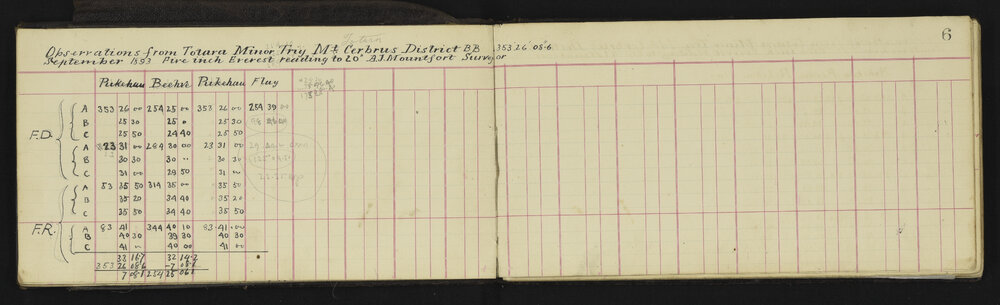 6
Observations from Totara Minor Trig Mt Cerbrus District BB 353 26 08.6
September 1893 Five inch Everest reading to 20" A.J. Mountfort Surveyor
Pukehau Beehve Pukehau Flag
F.D. A 353 26 00 254 25 00 353 26 00 254 39 00
B 25 30 25 0 25 30
C 25 50 24 40 25 50
A 323 31 00 284 30 00 23 31 00
B 30 30 30 .. 30 30
C 31 00 29 50 31 00
A 53 35 50 314 35 00 35 50
B 35 20 34 40 35 20
C 35 50 34 40 35 50
F.R. A 83 41 .. 344 40 10 83 41 00
B 40 30 39 30 40 30
C 41 00 40 00 41 00
33 16.7 32 14.2
353 26 08.6 -7 08.1
7 08.1 254 25 06.1